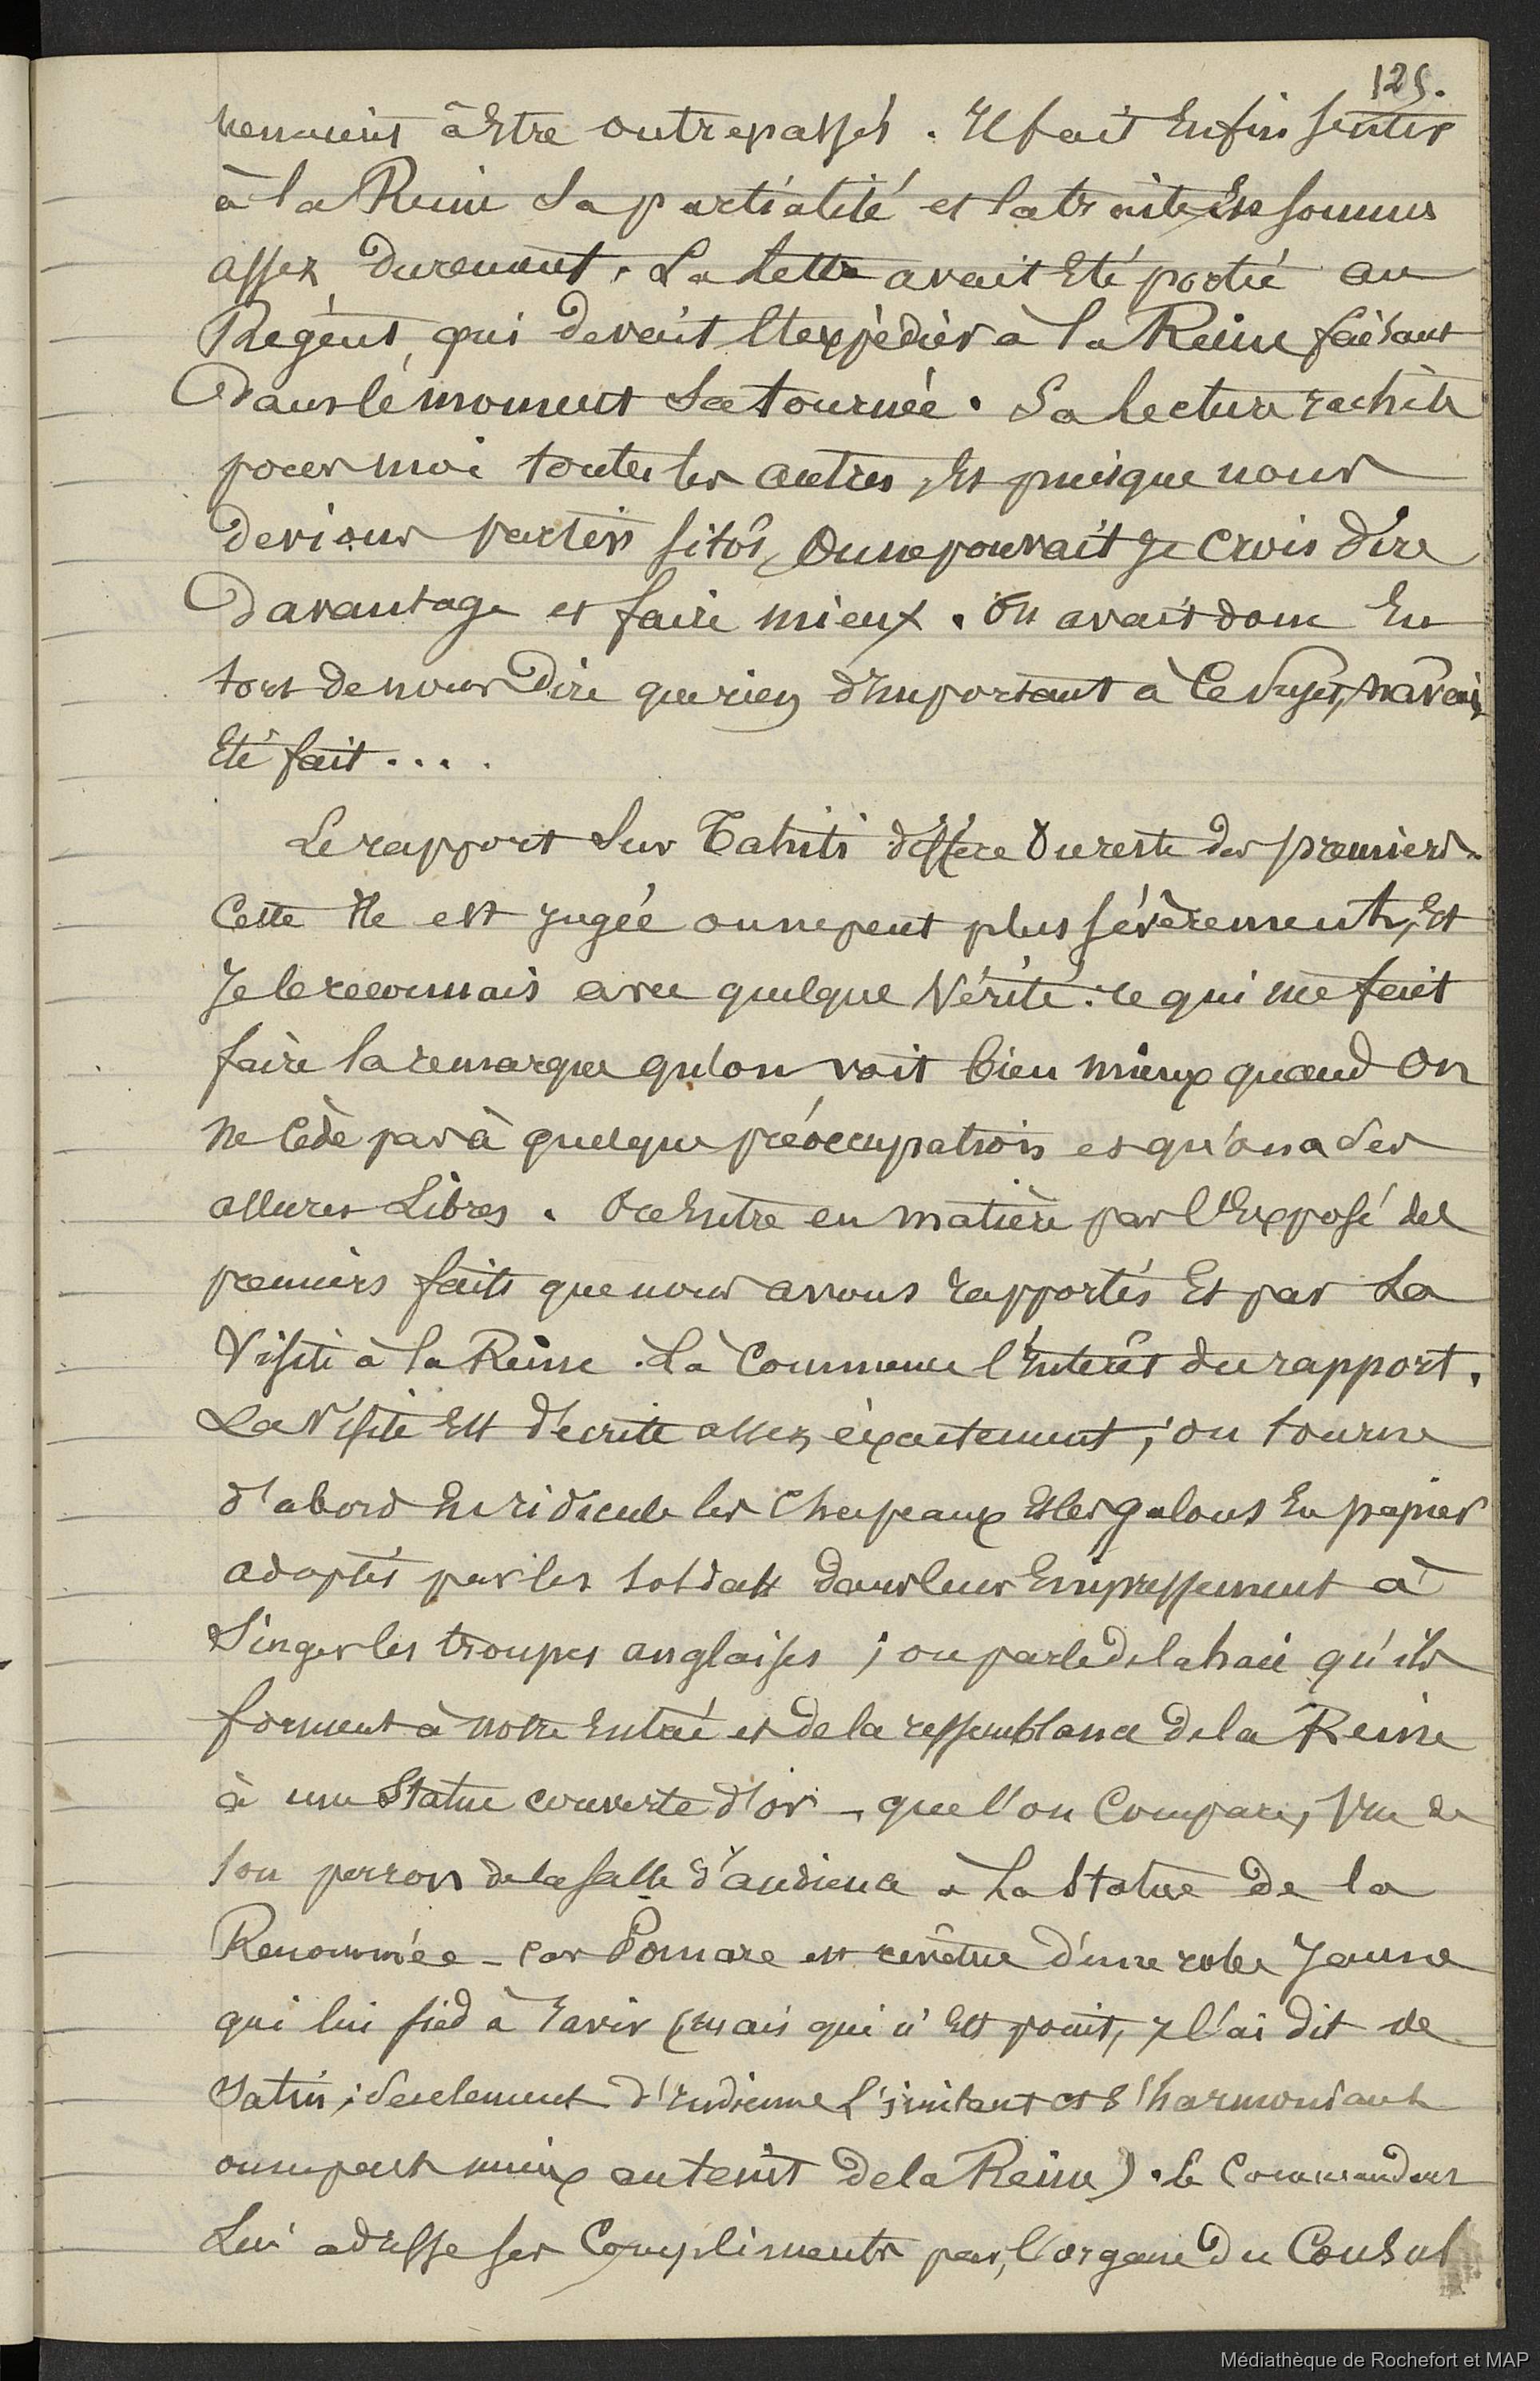 125.
venaient à Etre outrepassés. Il fait Enfin sentir
à la Reine sa partialité et la traite En somme
assez durement. La lettre avait Eté portée au
Régent, qui devait l'expédier à la Reine faisant
dans le moment sa tournée. Sa lecture rachète
pour moi toutes les autres, Et puisque nous
devions partir sitôt, On ne pouvait je crois dire
davantage et faire mieux. On avait donc Eu
tort de nous dire que rien d'Important à ce sujet, n'avait
Eté fait....
Le rapport sur Tahiti diffère du reste des premiers.
Cette Ile est jugée on ne peut plus sévèrement, Et
Je le reconnais avec quelque Vérité: ce qui me fait
faire la remarque qu'on voit bien mieux quand On
ne cède pas à quelque préoccupation et qu'on a des
allures Libres. On Entre en matière par l'Exposé des
premiers faits que nous avons rapportés Et par La
Visite à la Reine. Là Commence l'Intérêt du rapport.
La Visite Est décrite assez éxactement; on tourne
d'abord En ridicule les Chapeaux Et les galons En papier
adoptés par les soldats dans leur Empressement à
Singer les troupes anglaises; on parle de la haie qu'ils
forment à notre Entrée et de la ressemblance de la Reine
à une Statue couverte d'or – que l'on Compare, Vue de
son perron de la salle d'audience à La Statue de la
Renommée – car Pomare est revêtue d'une robe Jaune
qui lui sied à ravir (mais qui n'Est point, je l'ai dit de
Satin; seulement d'Indienne l'imitant et s'harmonisant
on ne peut mieux au teint de la Reine). Le Commandant
Lui adresse ses Compliments par l'organe du Consul
Médiathèque de Rochefort et MAP